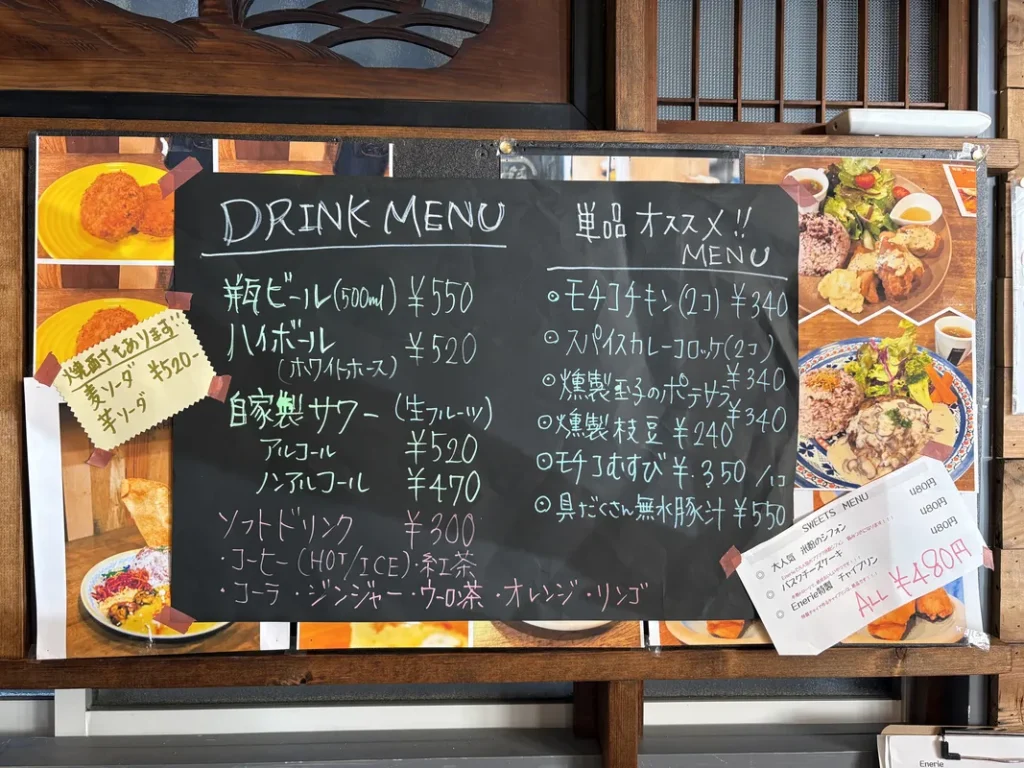 DRINK MENU
瓶ビール(500ml) ¥550
ハイボール
(ホワイトホース) ¥520
自家製サワー (生フルーツ)
アルコール ¥520
ノンアルコール ¥470
ソフトドリンク ¥300
・コーヒー(HOT/ICE)・紅茶
・コーラ・ジンジャー・ウーロン茶・オレンジ・リンゴ
単品オススメ!!
MENU
モチコチキン(2コ) ¥340
スパイスカレーコロッケ(2コ)
¥340
燻製玉子のポテサラ
¥340
燻製枝豆 ¥240
モチコむすび ¥.350/1コ
具だくさん無水豚汁 ¥550
焼酎もあります!!
麦ソーダ ¥520-
芋ソーダ
SWEETS MENU
大人気 米粉のシフォン 480円
バスクチーズケーキ 480円
Enerie特製 チャイプリン 480円
ALL ¥480円
Enerie